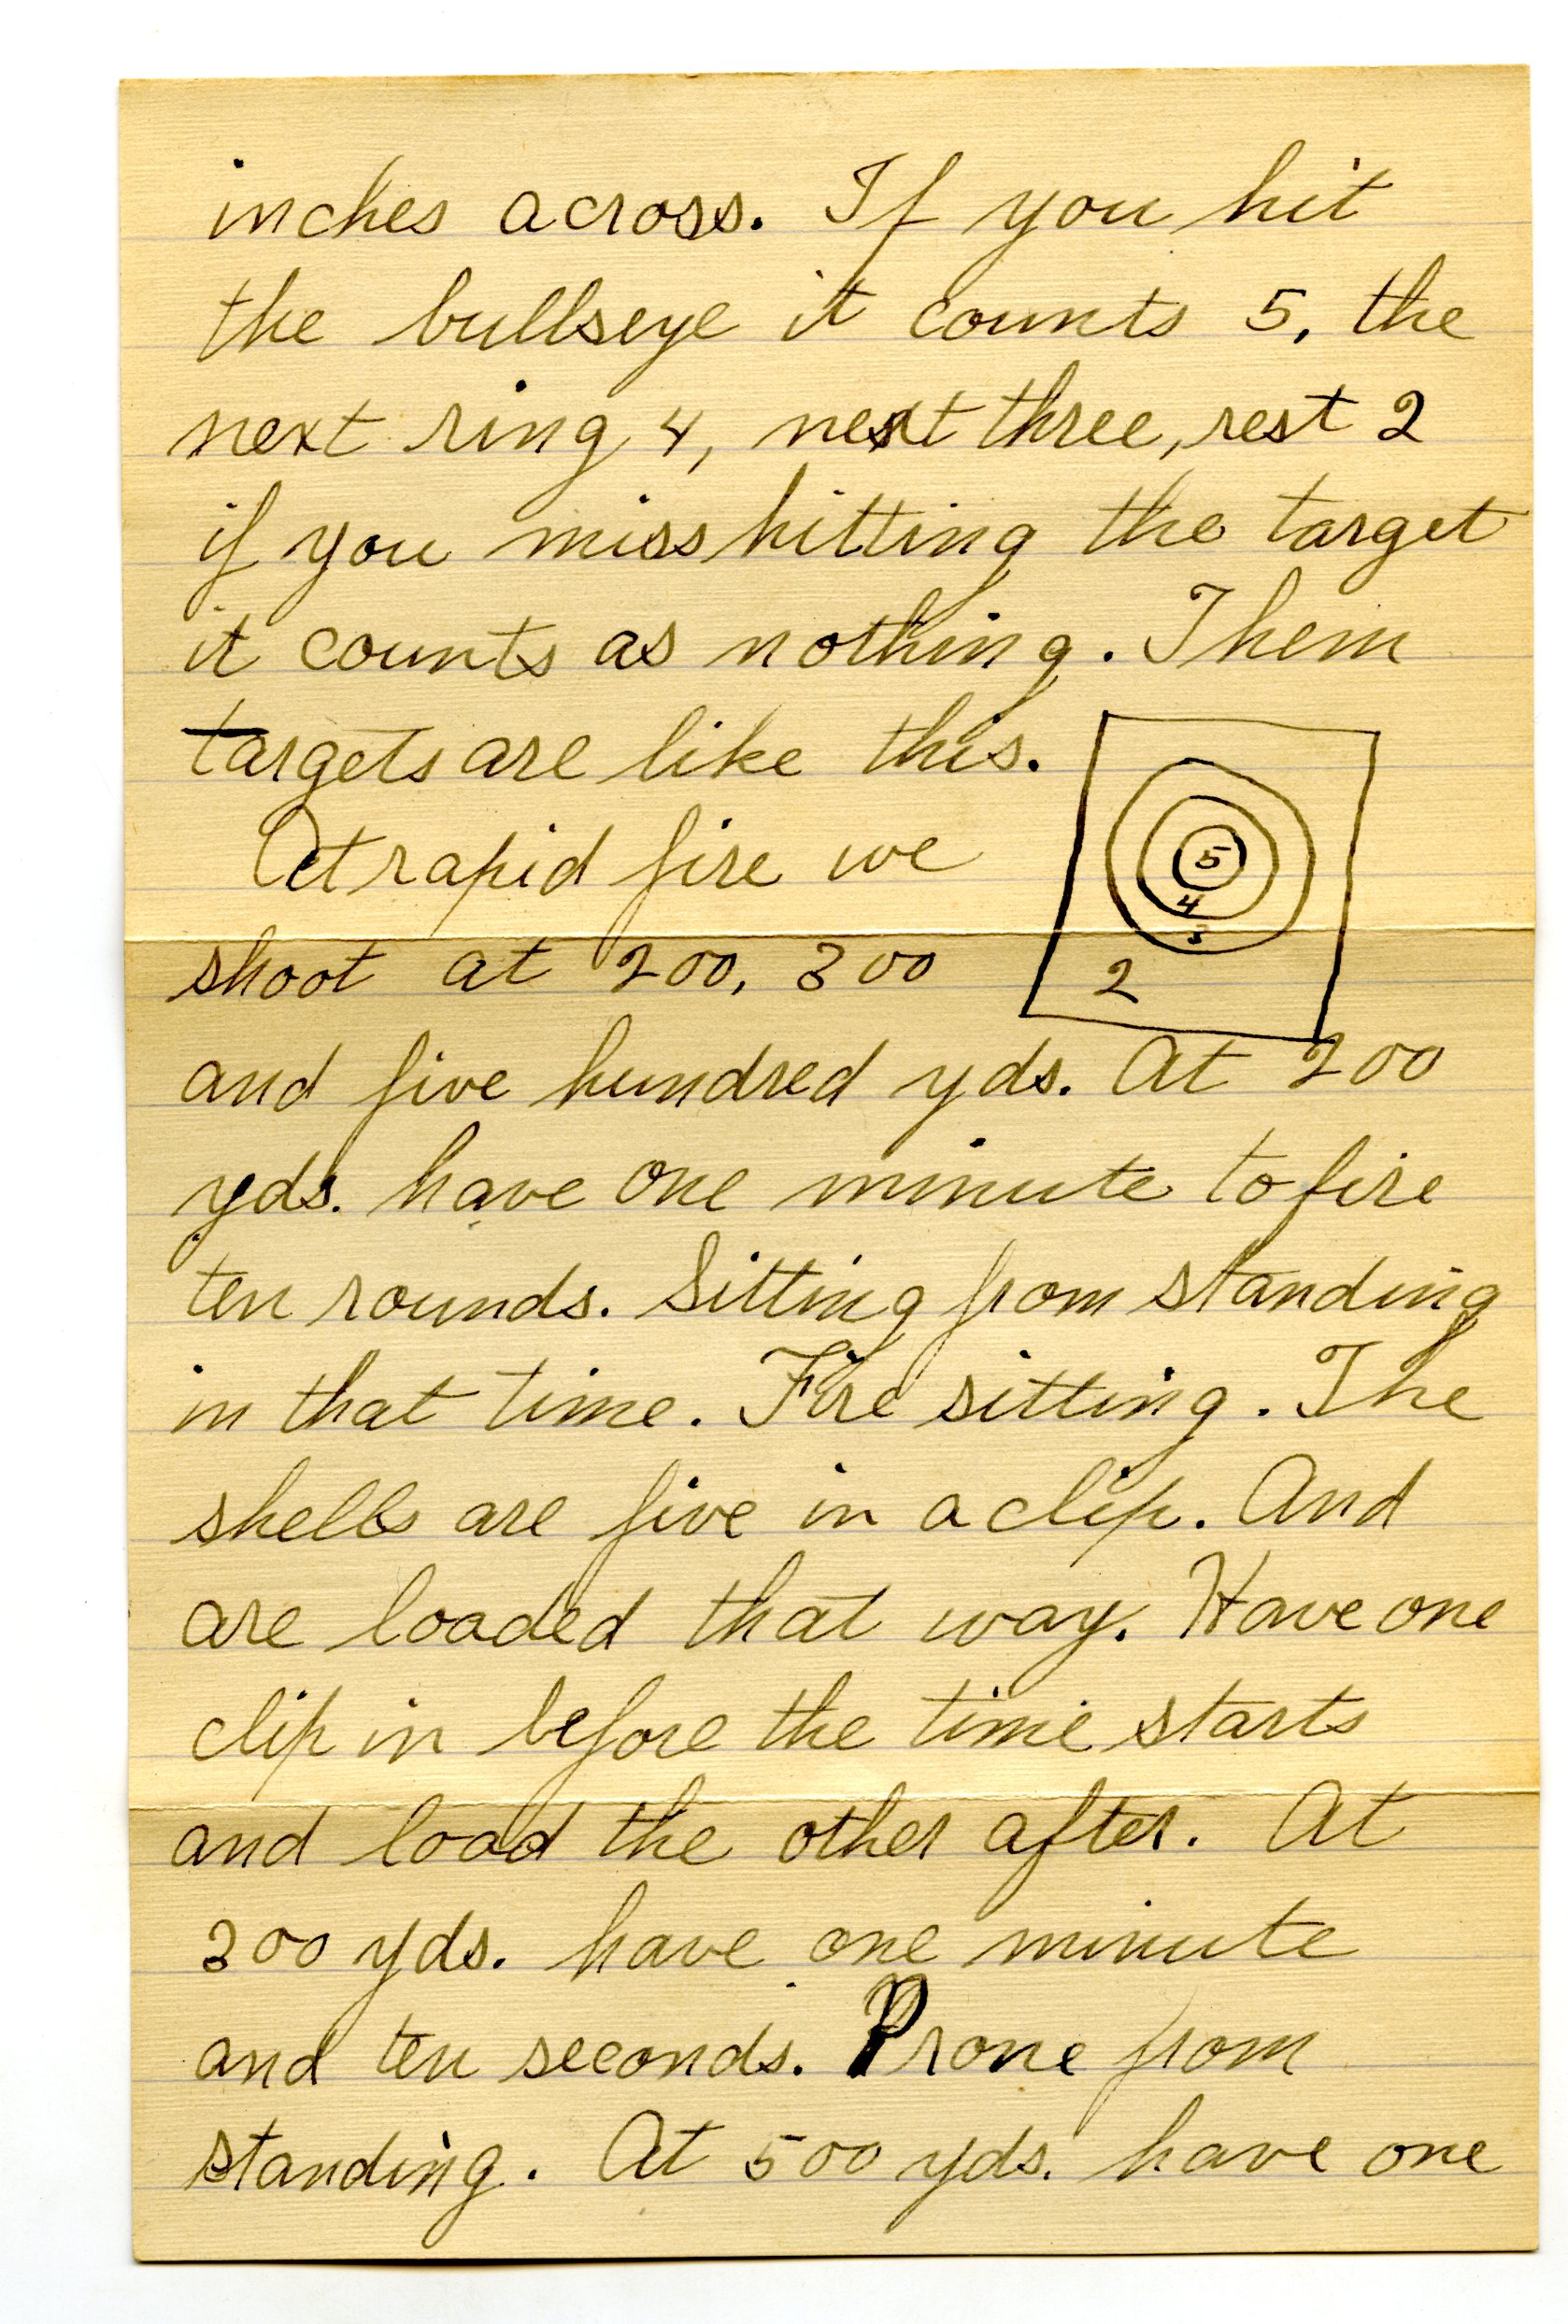 inches across. If you hit
the bullseye it counts 5, the
next ring 4, next three, rest 2
if you miss hitting the target
it counts as nothing. Them
targets are like this.
5
4
3
2
At rapid fire we
shoot at 200, 300
and five hundred yds. At 200
yds. have one minute to fire
ten rounds. Sitting from standing
in that time. Fire sitting. The
shells are five in a clip. And
are loaded that way. Have one
clip in before the time starts
and load the other after. At
300 yds. have one minute
and ten seconds. Prone from
standing. At 500 yds. have one